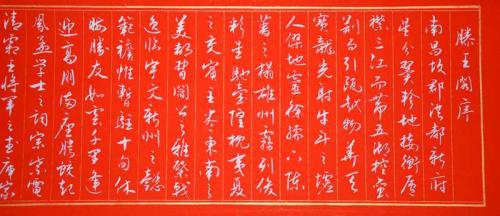 滕王閣序
南昌故郡洪都新府
星分翼軫地接衡廬
襟三江而帶五湖控蠻
荊而引甌越物華天
寶龍光射牛斗之墟
人傑地靈徐孺下陳
蕃之榻雄州霧列俊
彩星馳臺隍枕夷夏
之交賓主盡東南之
美都督閻公之雅棨戟
遙臨宇文新州之懿
範襜帷暫駐十旬休
暇勝友如雲千里逢
迎高朋滿座騰蛟起
鳳孟學士之詞宗紫電
清霜王將軍之武庫家